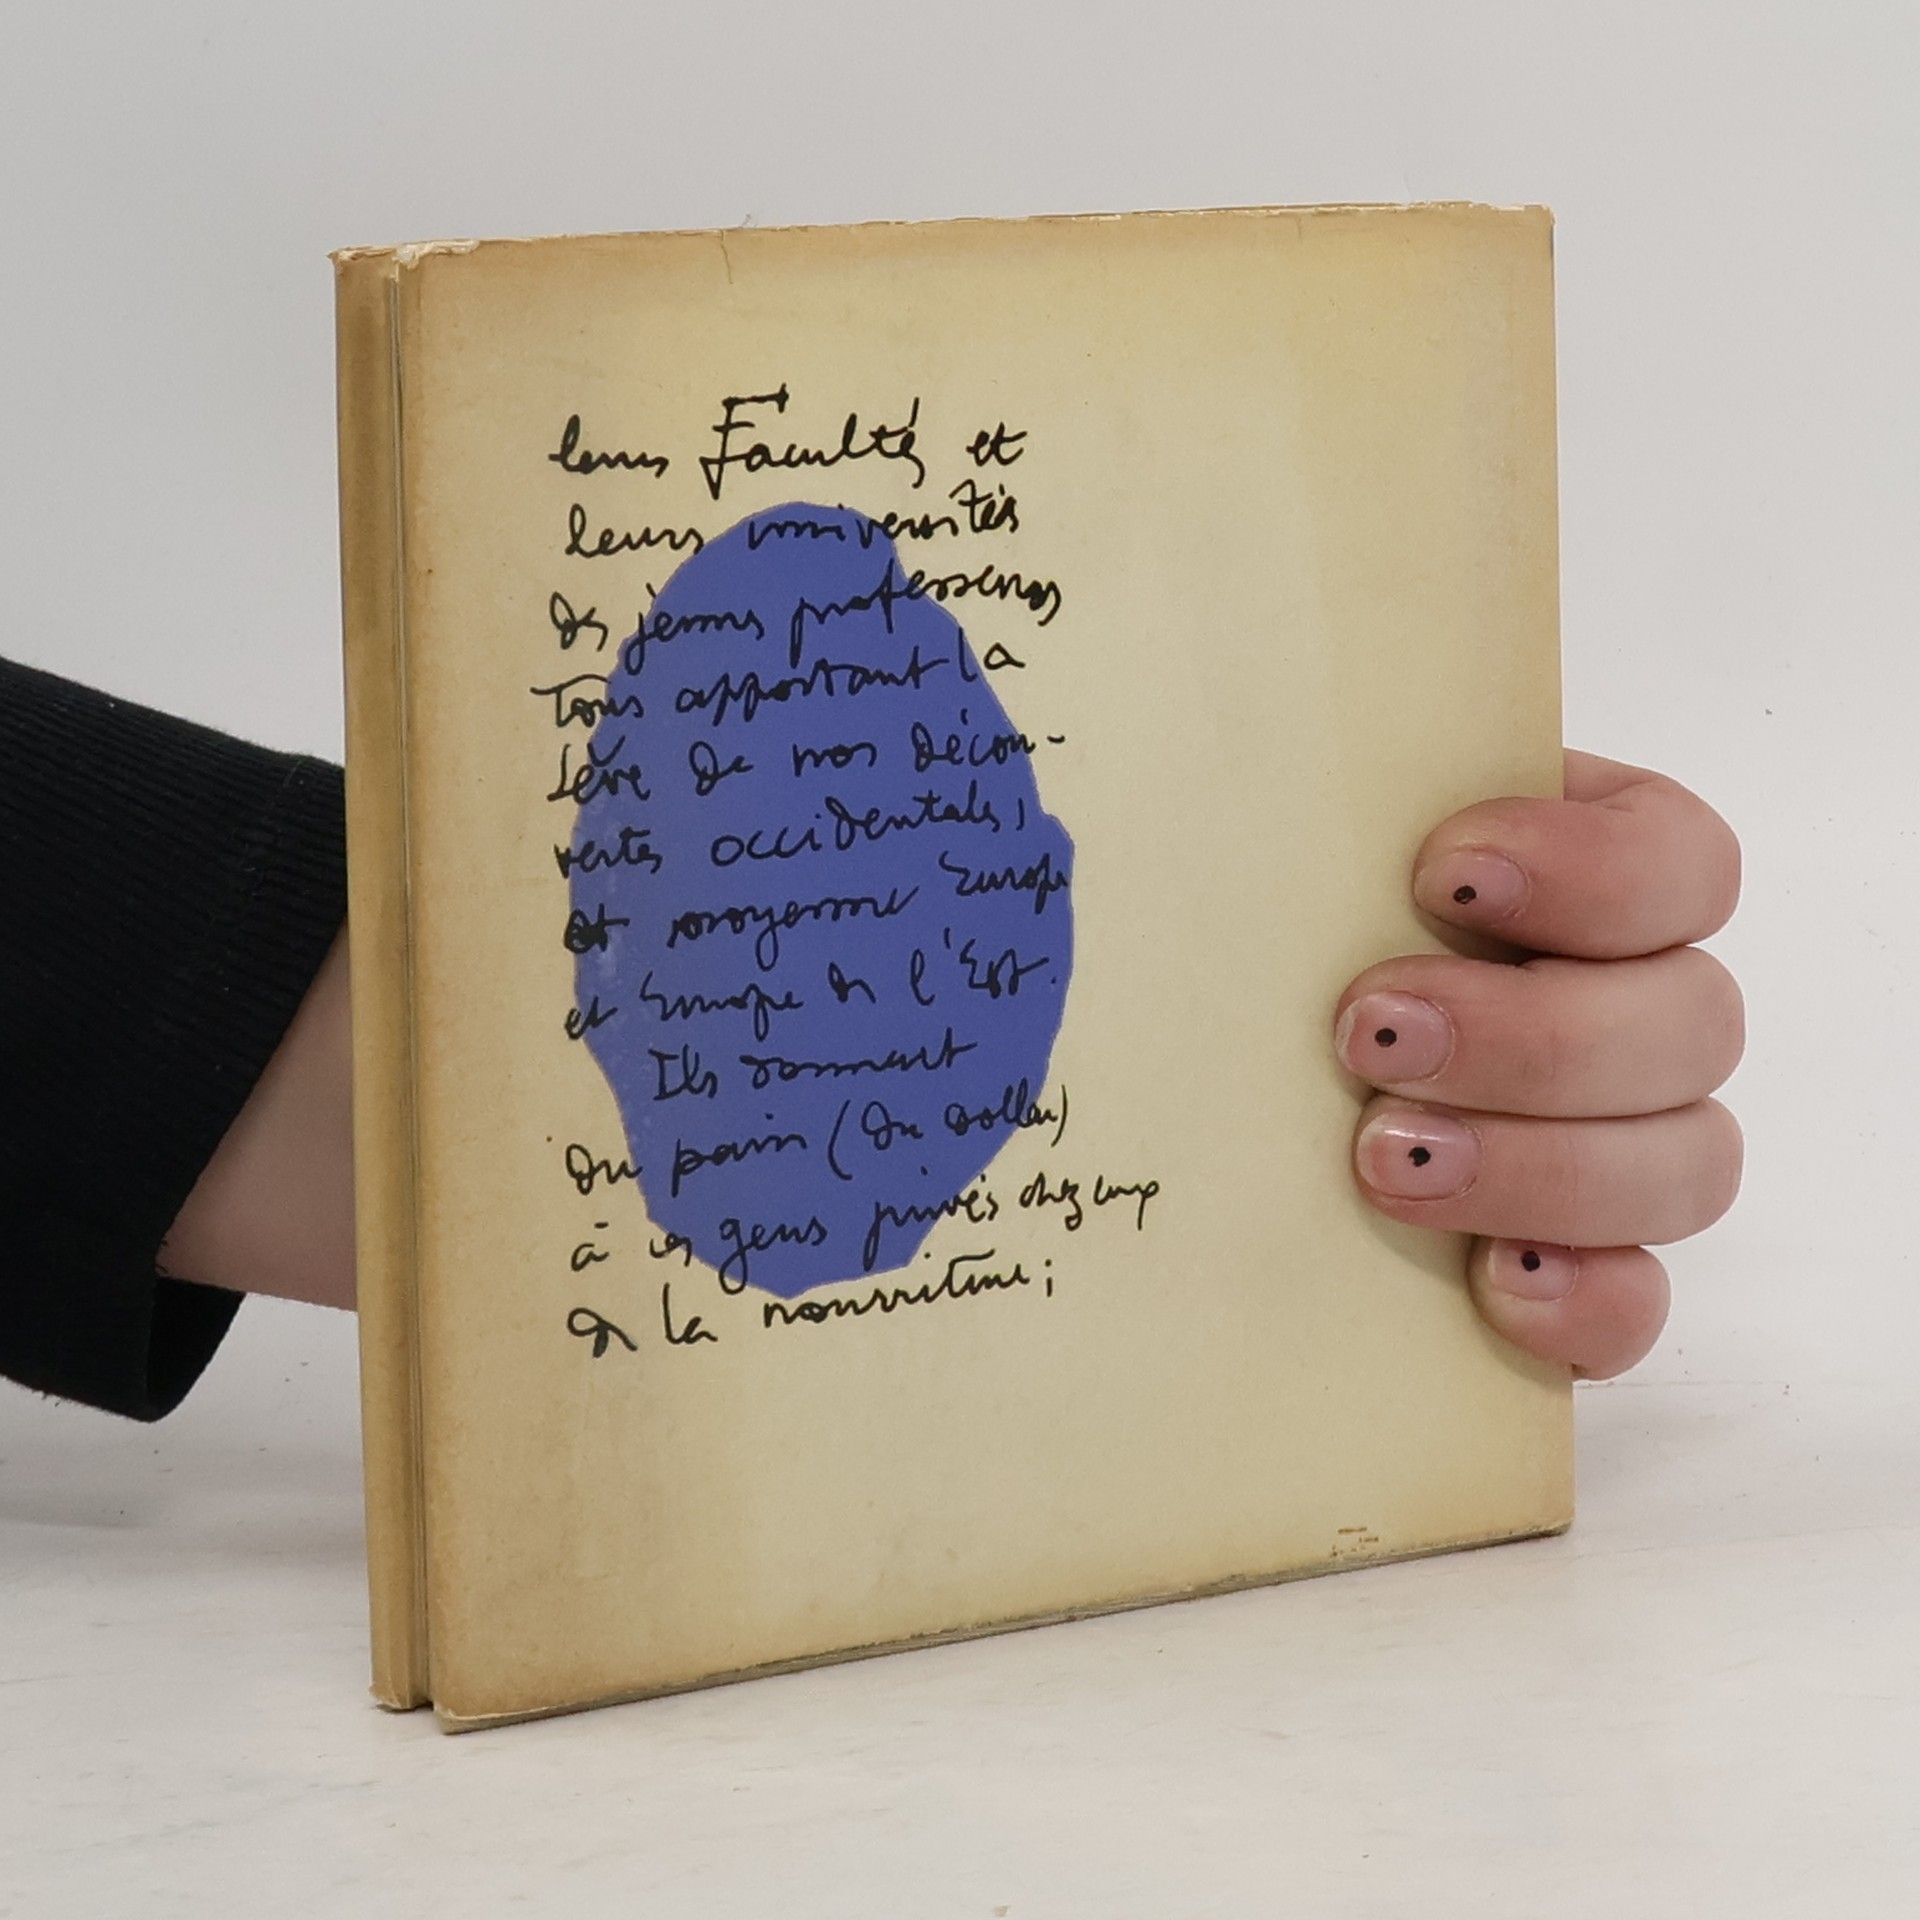 leurs Facultés et
leurs universités
des jeunes professeurs
tous apportant la
sève de nos décou-
vertes occidentales,
et moyenne Europe
et Europe de l'Est.
Ils donnent
du pain (du dollar)
à ces gens privés chez eux
de la nourriture;